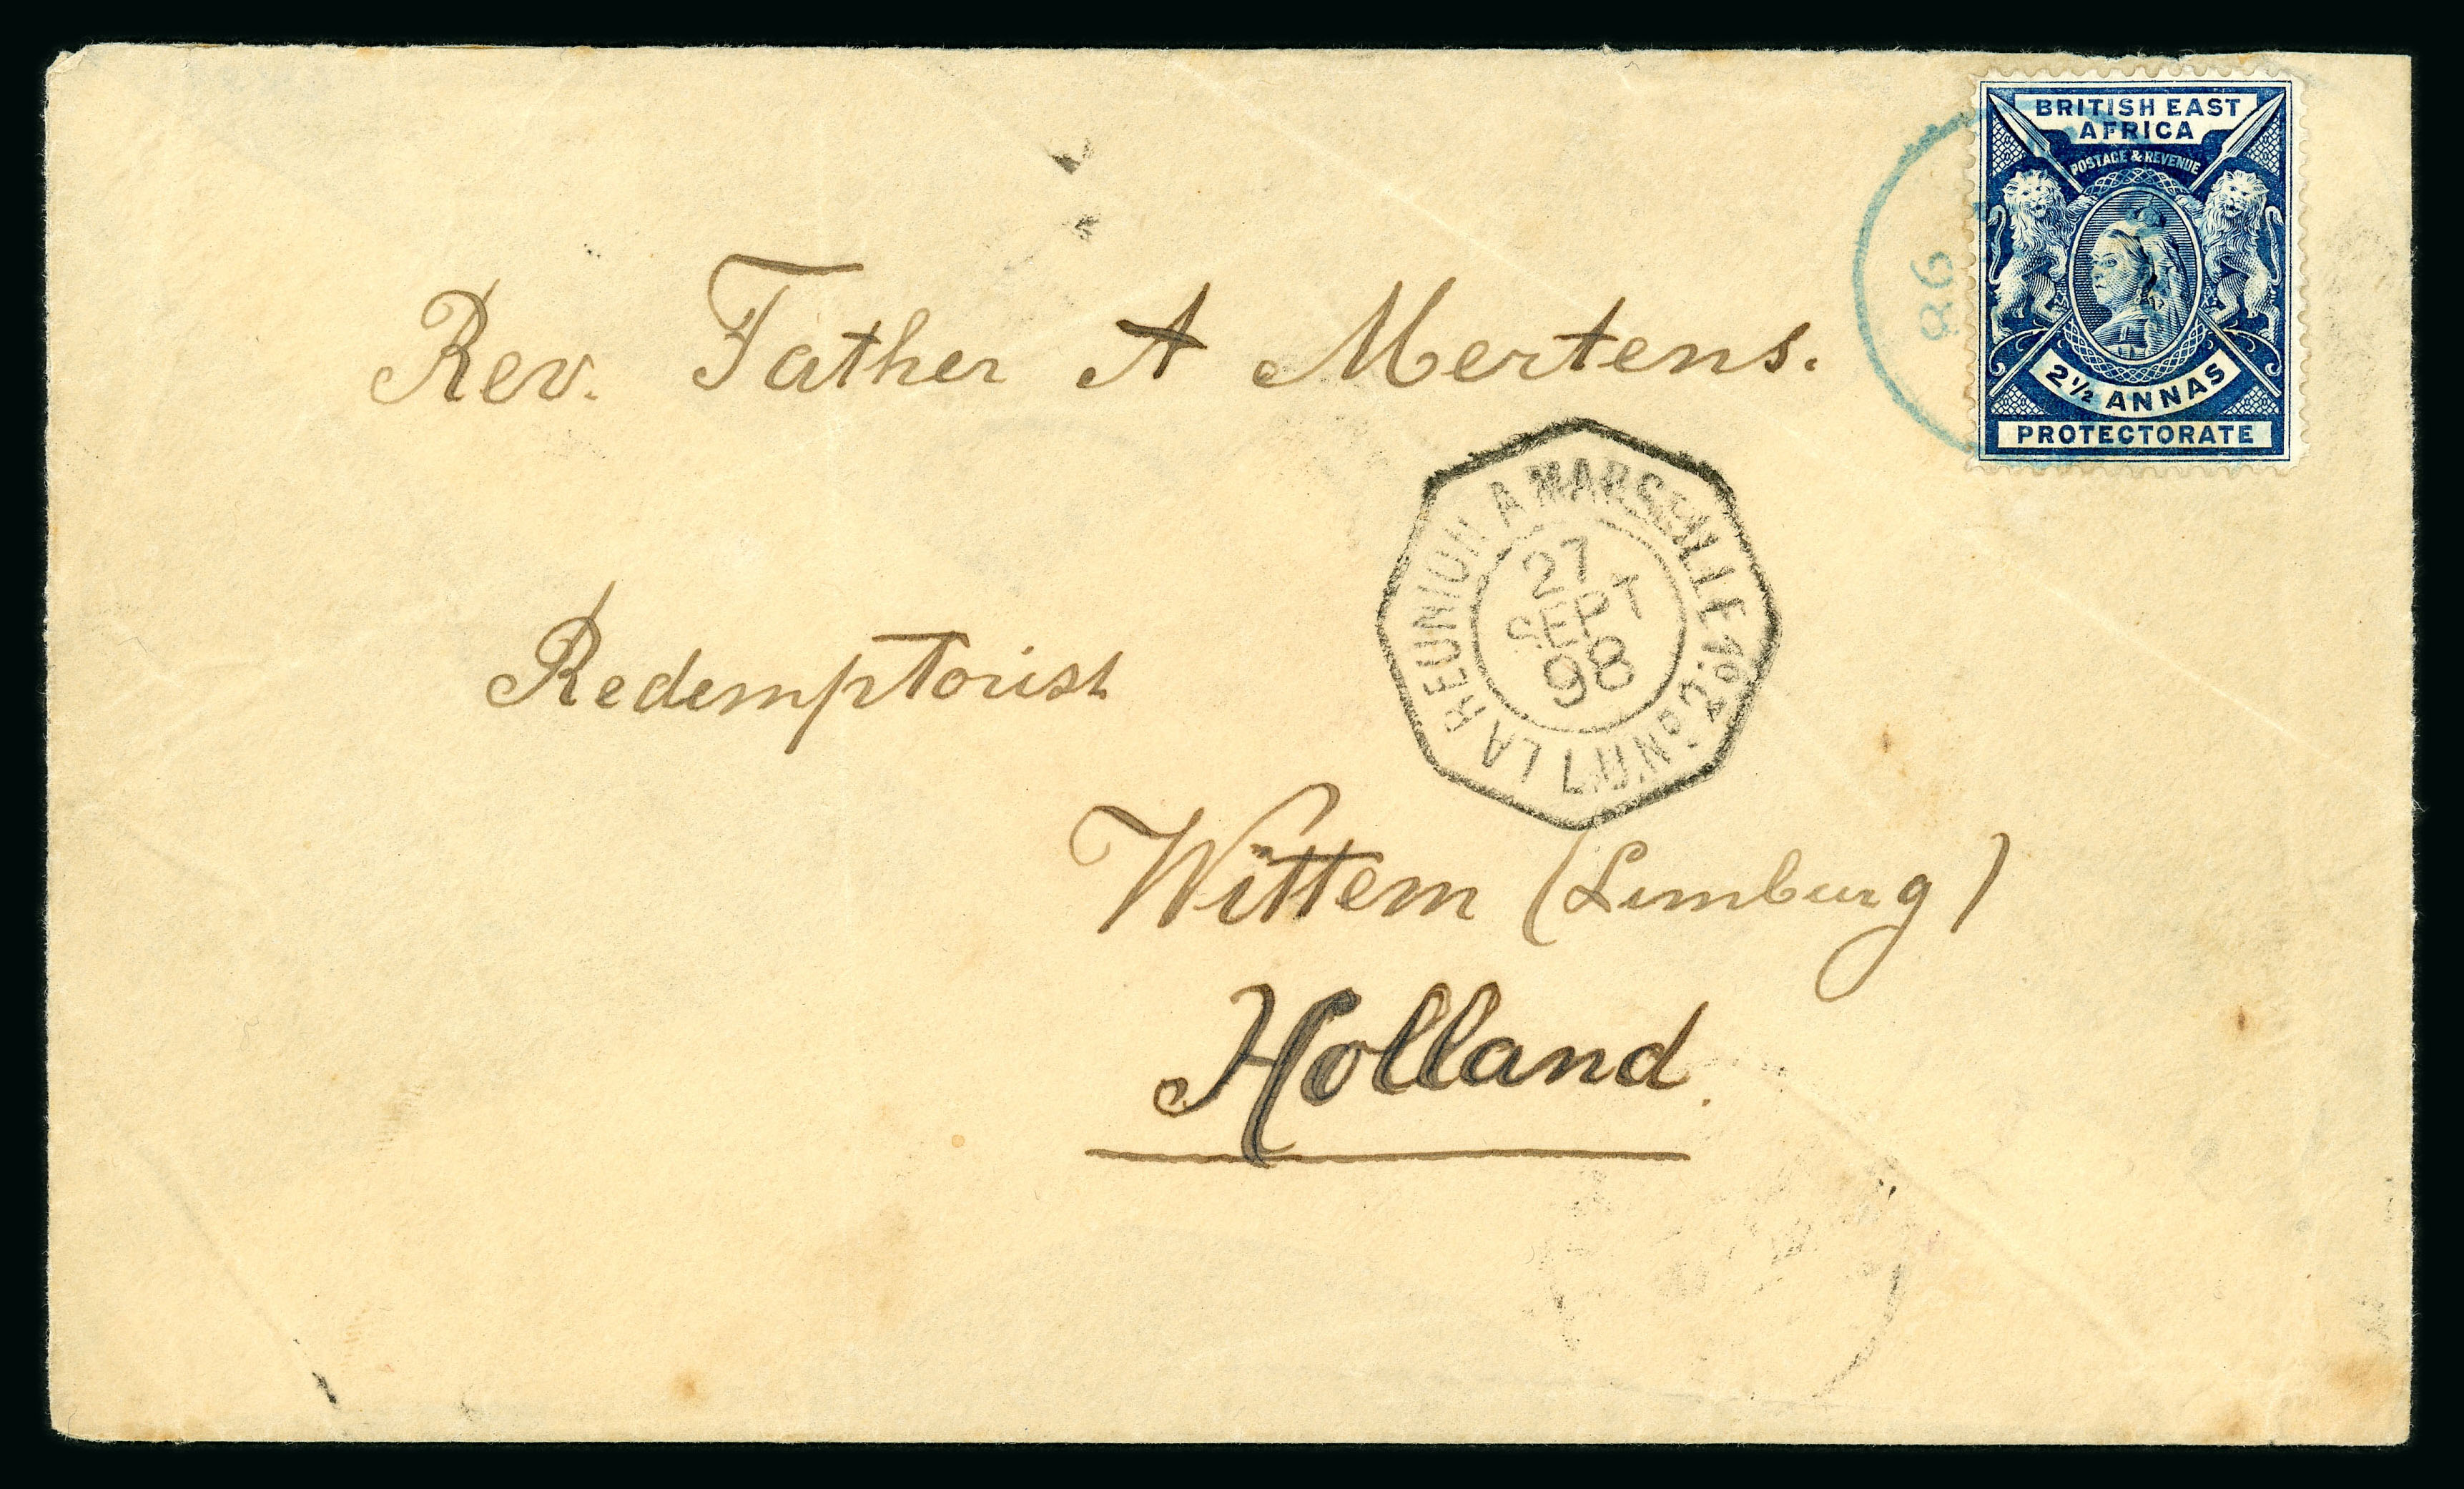 BRITISH EAST
AFRICA
POSTAGE & REVENUE
2½ ANNAS
PROTECTORATE
98
Rev. Father A Mertens.
LA REUNION A MARSEILLE
27
SEPT
98
L.U. Nº 2
Redemptorist
Wittem (Limburg)
Holland.